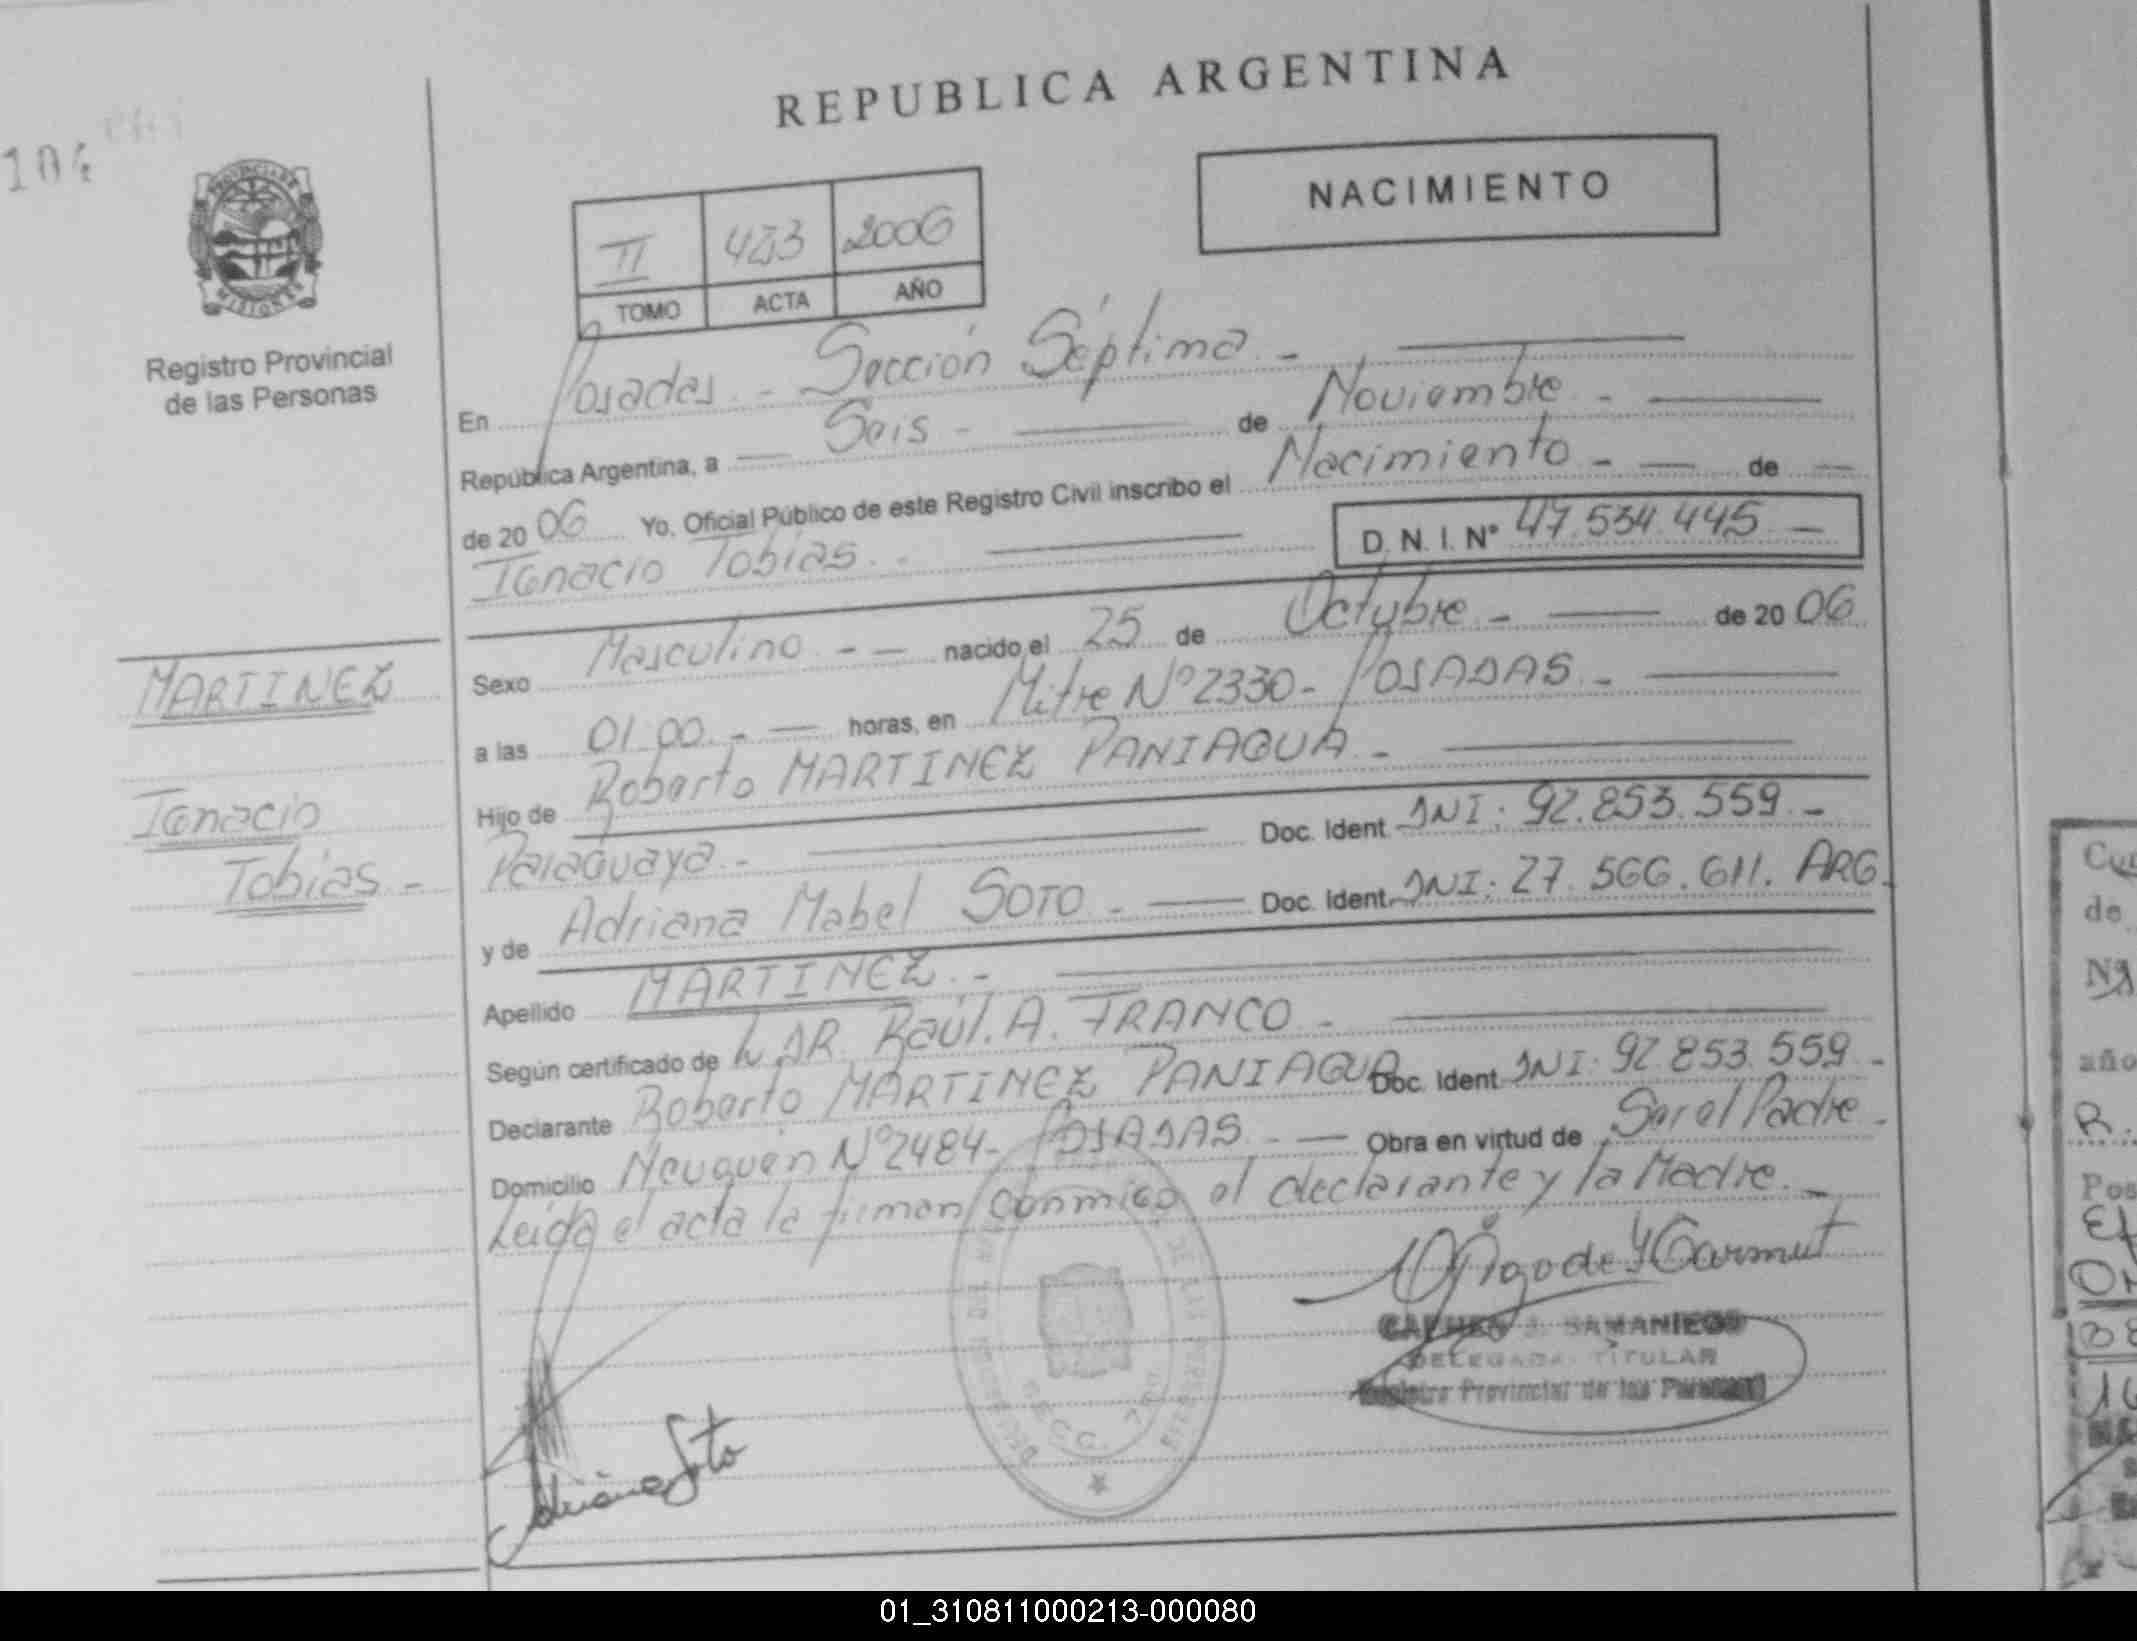 REPUBLICA ARGENTINA
104
NACIMIENTO
PROVINCIA DE MISIONES
II 2006
TOMO ACTA AÑO
Registro Provincial
de las Personas
En Posadas - Sección Séptima -
República Argentina, a Seis - de Noviembre -
de 2006 Yo, Oficial Público de este Registro Civil inscribo el Nacimiento - de
Ignacio Tobias - D. N. I. N° 47.534.445
Sexo Masculino - - nacido el 25 de Octubre - de 2006
MARTINEZ
a las 01 00 - horas, en Mitre N° 2330 - POSADAS -
Hijo de Roberto MARTINEZ PANIAGUA -
Ignacio
Tobias -
Paraguaya - Doc. Ident DNI: 92.853.559 -
y de Adriana Mabel SOTO - Doc. Ident DNI: 27.566.611. ARG.
Apellido MARTINEZ. -
Según certificado de DR Raúl. A. FRANCO -
Declarante Roberto MARTINEZ PANIAGUA Doc. Ident DNI: 92 853.559 -
Domicilio Neuquén N° 2484 - POSADAS - Obra en virtud de Ser el Padre -
Leida el acta la firman conmigo el declarante y la Madre. -
CARMEN J. SAMANIEGO
DELEGADA TITULAR
Registro Provincial de las Personas
SECC. 7ma
Adriana Soto
01_310811000213-000080